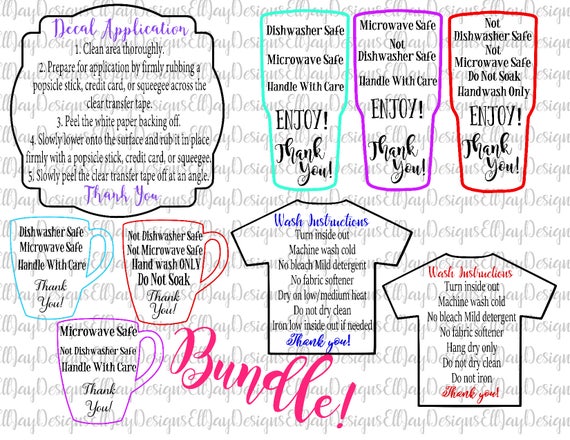 Decal Application
1. Clean area thoroughly.
2. Prepare for application by firmly rubbing a
popsicle stick, credit card, or squeegee across the
clear transfer tape.
3. Peel the white paper backing off.
4. Slowly lower onto the surface and rub it in place
firmly with a popsicle stick, credit card, or squeegee.
5. Slowly peel the clear transfer tape off at an angle.
Thank You
Dishwasher Safe
Microwave Safe
Handle With Care
ENJOY!
Thank
You!
Microwave Safe
Not
Dishwasher Safe
Handle With Care
ENJOY!
Thank
You!
Not
Dishwasher Safe
Not
Microwave Safe
Do Not Soak
Handwash Only
ENJOY!
Thank
You!
Dishwasher Safe
Microwave Safe
Handle With Care
Thank
You!
Not Dishwasher Safe
Not Microwave Safe
Hand wash ONLY
Do Not Soak
Thank
You!
Microwave Safe
Not Dishwasher Safe
Handle With Care
Thank
You!
Wash Instructions
Turn inside out
Machine wash cold
No bleach Mild detergent
No fabric softener
Dry on low/medium heat
Do not dry clean
Iron low inside out if needed
Thank you!
Wash Instructions
Turn inside out
Machine wash cold
No bleach Mild detergent
No fabric softener
Hang dry only
Do not dry clean
Do not iron
Thank you!
Bundle!